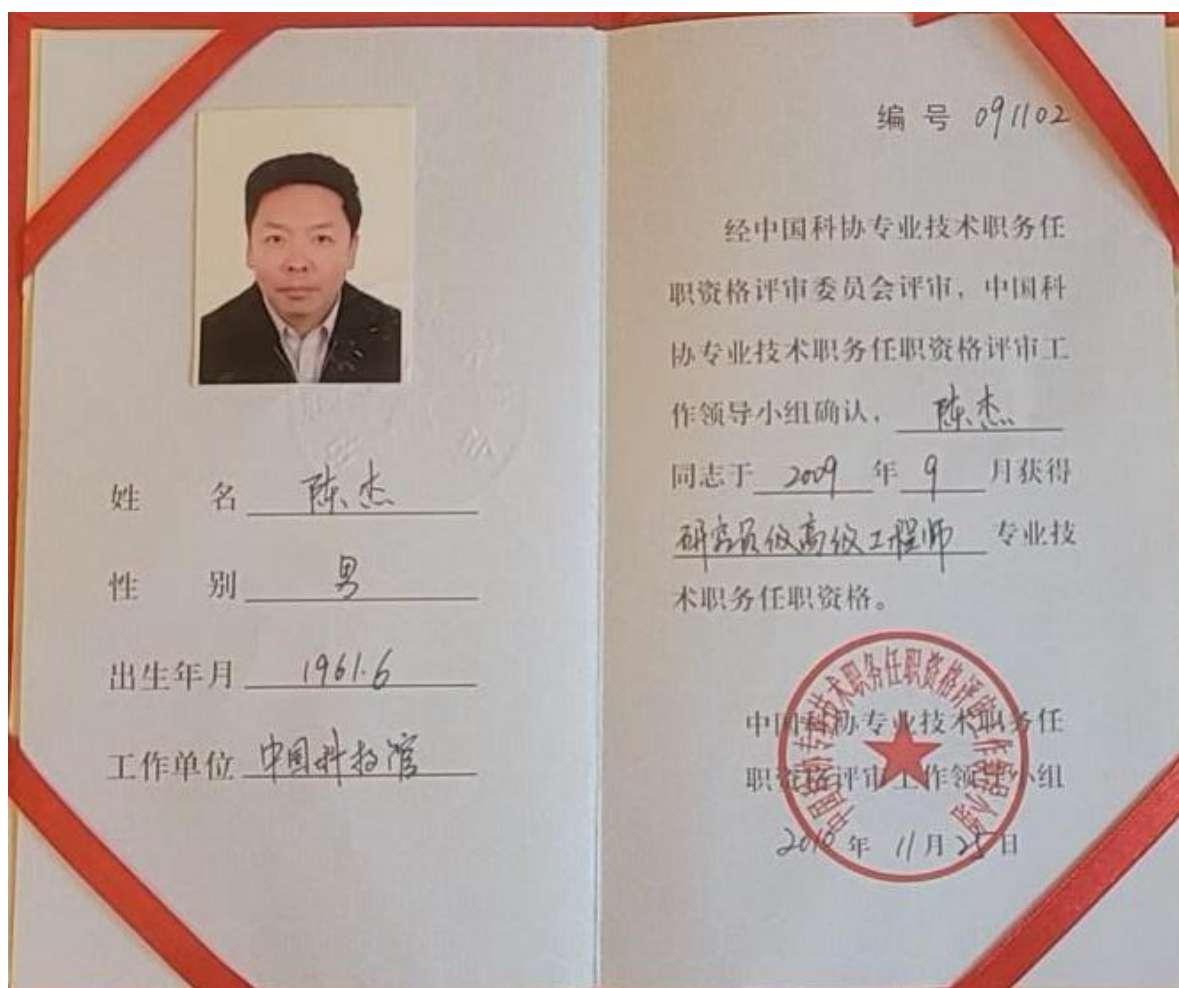 姓 名 陈杰
性 别 男
出生年月 1961.6
工作单位 中国科技馆
编 号 091102
经中国科协专业技术职务任
职资格评审委员会评审，中国科
协专业技术职务任职资格评审工
作领导小组确认，陈杰
同志于 2009 年 9 月获得
研究员级高级工程师 专业技
术职务任职资格。
中国科协专业技术职务任
职资格评审工作领导小组
2010 年 11 月 25 日